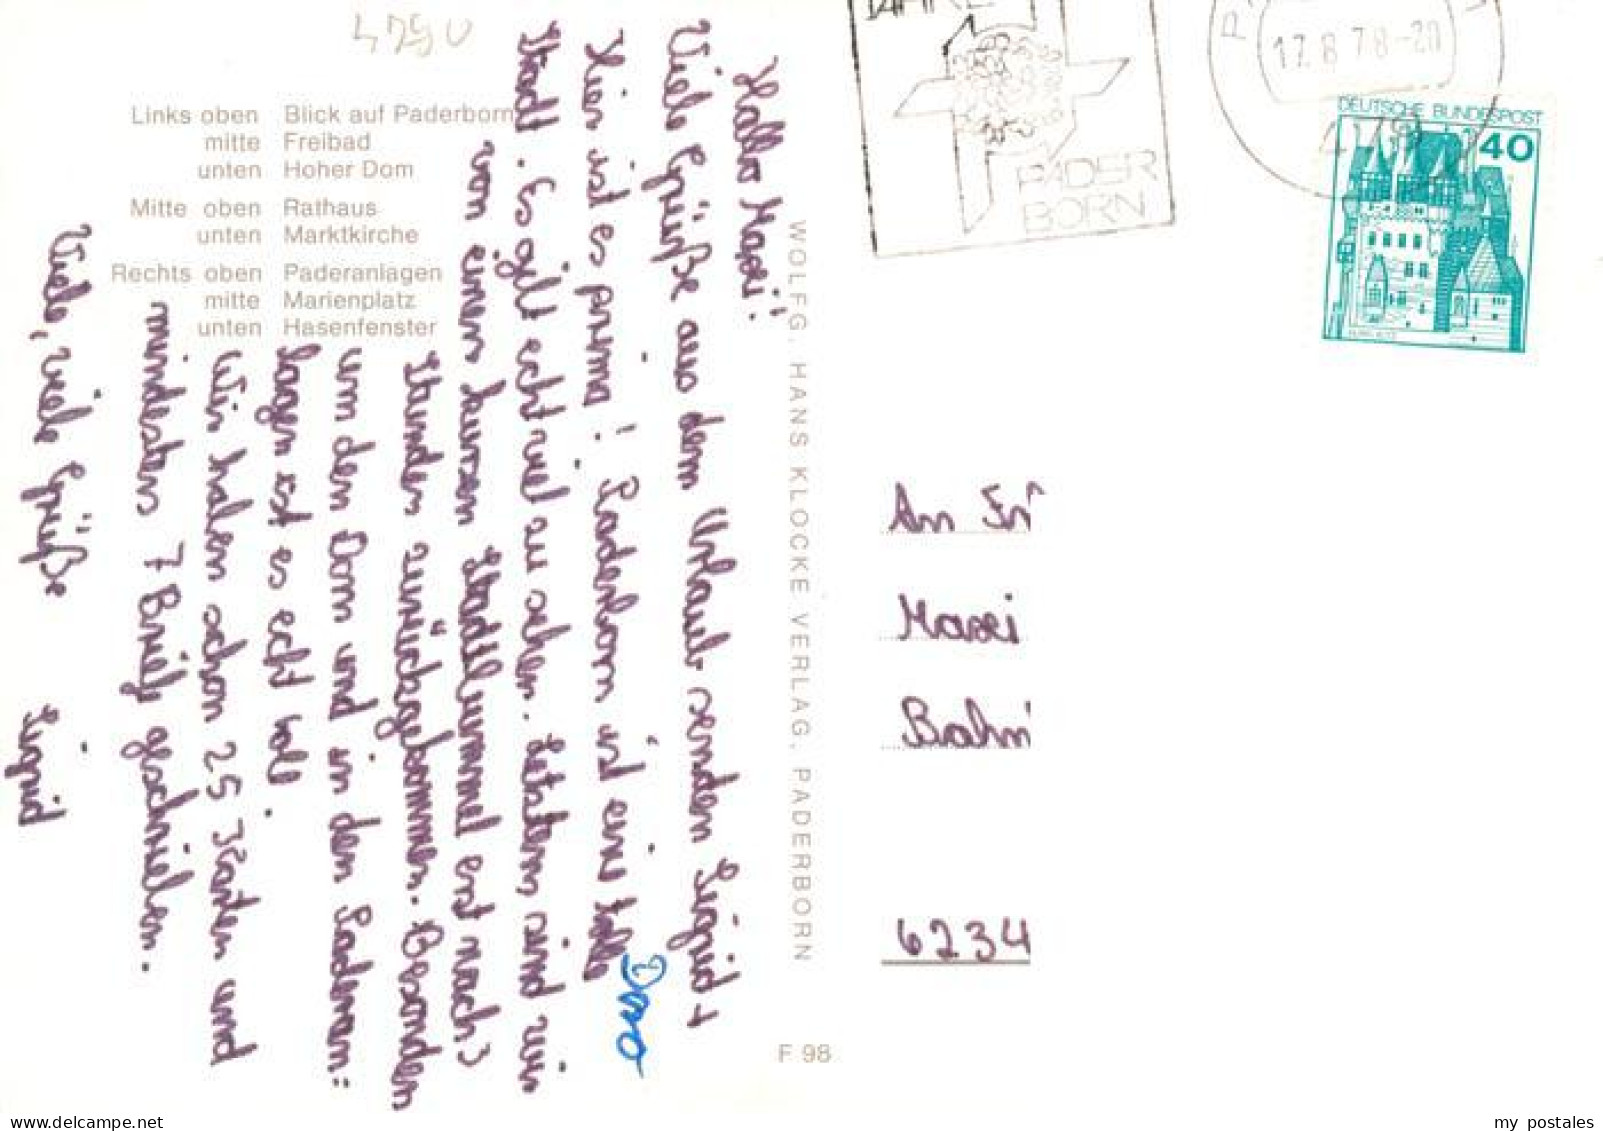 4790
Links oben Blick auf Paderborn
mitte Freibad
unten Hoher Dom
Mitte oben Rathaus
unten Marktkirche
Rechts oben Paderanlagen
mitte Marienplatz
unten Hasenfenster
Hallo Maxi!
Viele Grüße aus dem Urlaub senden Sigrid +
Hier ist es prima! Paderborn ist eine tolle
Stadt. Es gibt echt viel zu sehen. Gestern sind wir
von einem kurzen Stadtbummel erst nach 3
Stunden zurückgekommen. Besonders
um den Dom und in den Paderan=
lagen ist es echt toll.
Wir haben schon 25 Karten und
mindestens 7 Briefe geschrieben.
Viele, viele Grüße Sigrid
WOLFG. HANS KLOCKE VERLAG, PADERBORN
F 98
JAHRE
PADER
BORN
17.8.78-20
479
DEUTSCHE BUNDESPOST
40
An Fr
Maxi
Bahn
6234
my postales